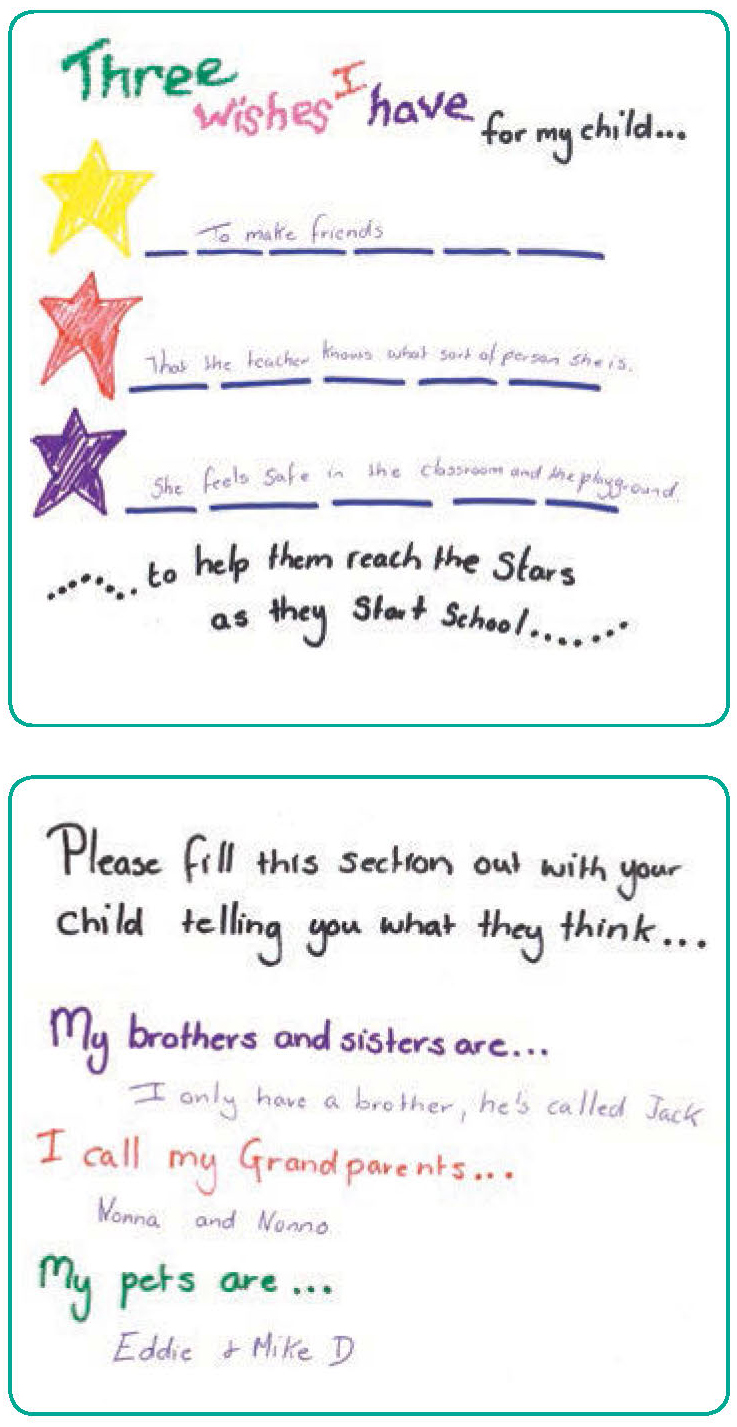 Three wishes I have for my child...
To make friends
That the teacher knows what sort of person she is.
She feels safe in the classroom and the playground.
........ to help them reach the Stars
as they Start School........
Please fill this section out with your
child telling you what they think...
My brothers and sisters are...
I only have a brother, he's called Jack
I call my Grandparents...
Nonna and Nonno
My pets are ...
Eddie & Mike D